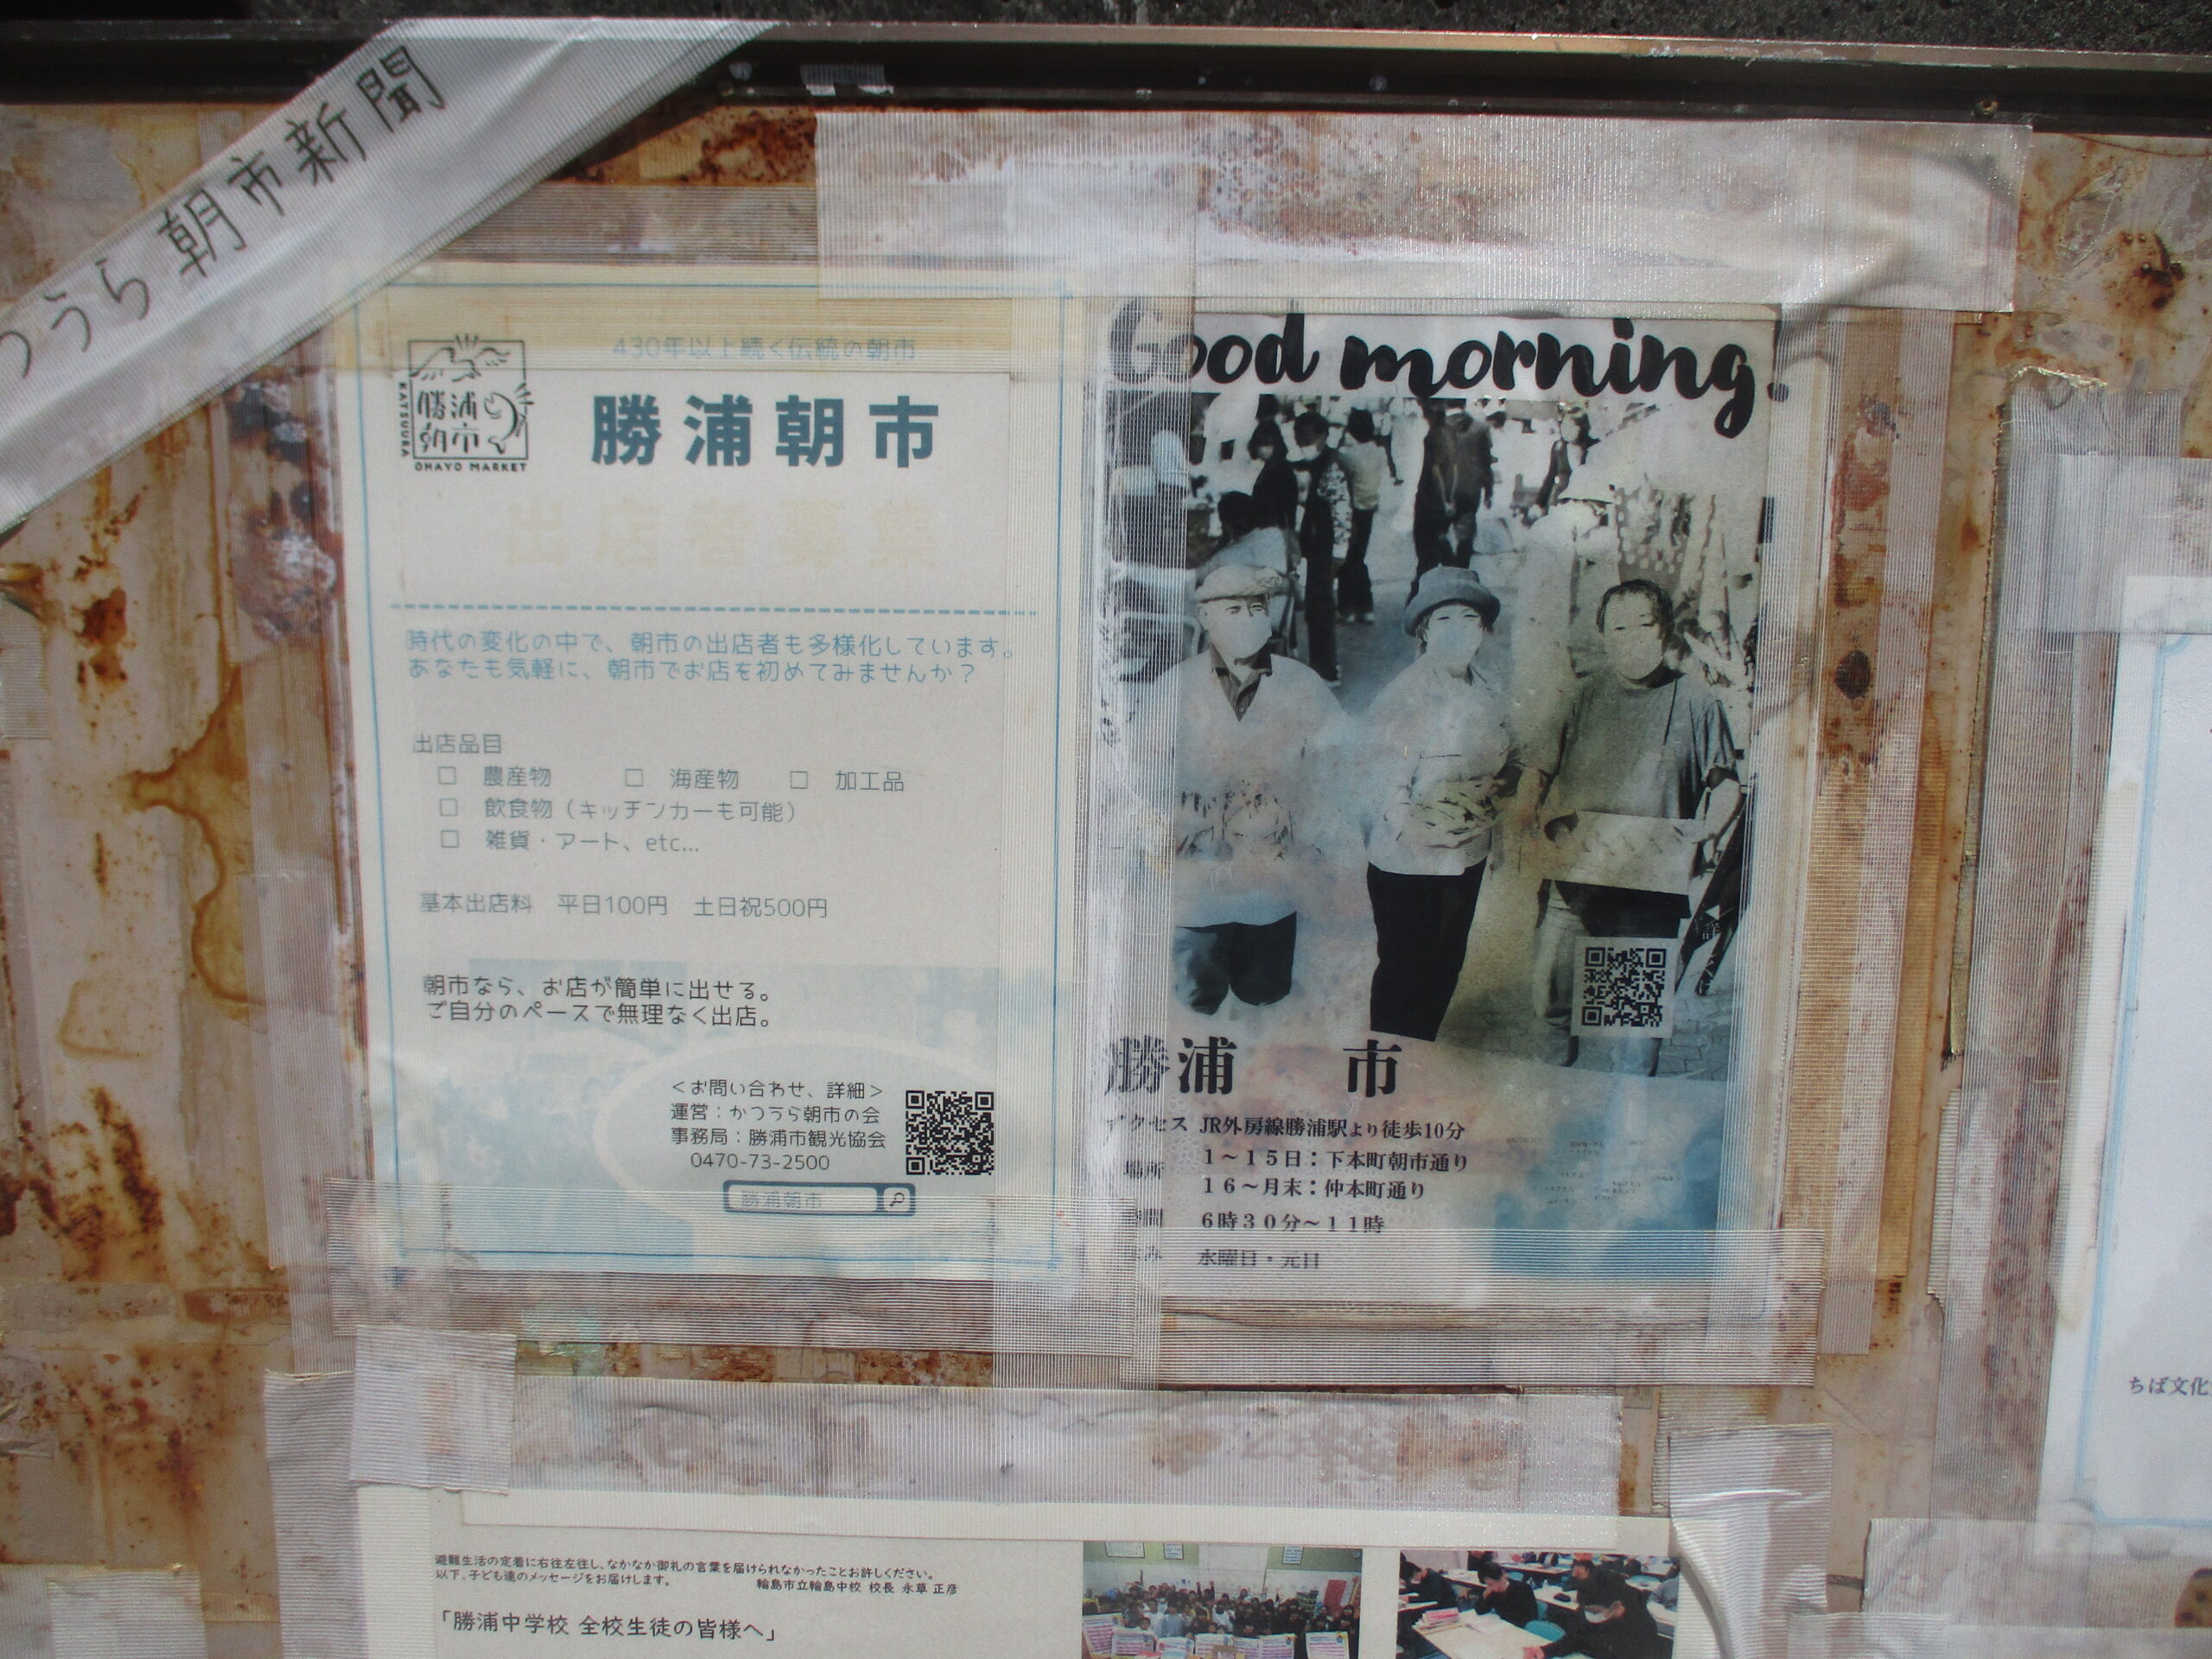 つうら朝市新聞
430年以上続く伝統の朝市
勝浦朝市
KATSUURA
勝浦
朝市
OHAYO MARKET
出店者募集
時代の変化の中で、朝市の出店者も多様化しています。
あなたも気軽に、朝市でお店を初めてみませんか？
出店品目
□ 農産物 □ 海産物 □ 加工品
□ 飲食物（キッチンカーも可能）
□ 雑貨・アート、etc...
基本出店料 平日100円 土日祝500円
朝市なら、お店が簡単に出せる。
ご自分のペースで無理なく出店。
＜お問い合わせ、詳細＞
運営：かつうら朝市の会
事務局：勝浦市観光協会
0470-73-2500
勝浦朝市
Good morning.
勝浦 市
アクセス JR外房線勝浦駅より徒歩10分
場所 1～15日：下本町朝市通り
16～月末：仲本町通り
6時30分～11時
水曜日・元日
避難生活の定着に右往左往し、なかなか御礼の言葉を届けられなかったことお許しください。
以下、子ども達のメッセージをお届けします。
輪島市立輪島中校 校長 永草 正彦
「勝浦中学校 全校生徒の皆様へ」
ちば文化